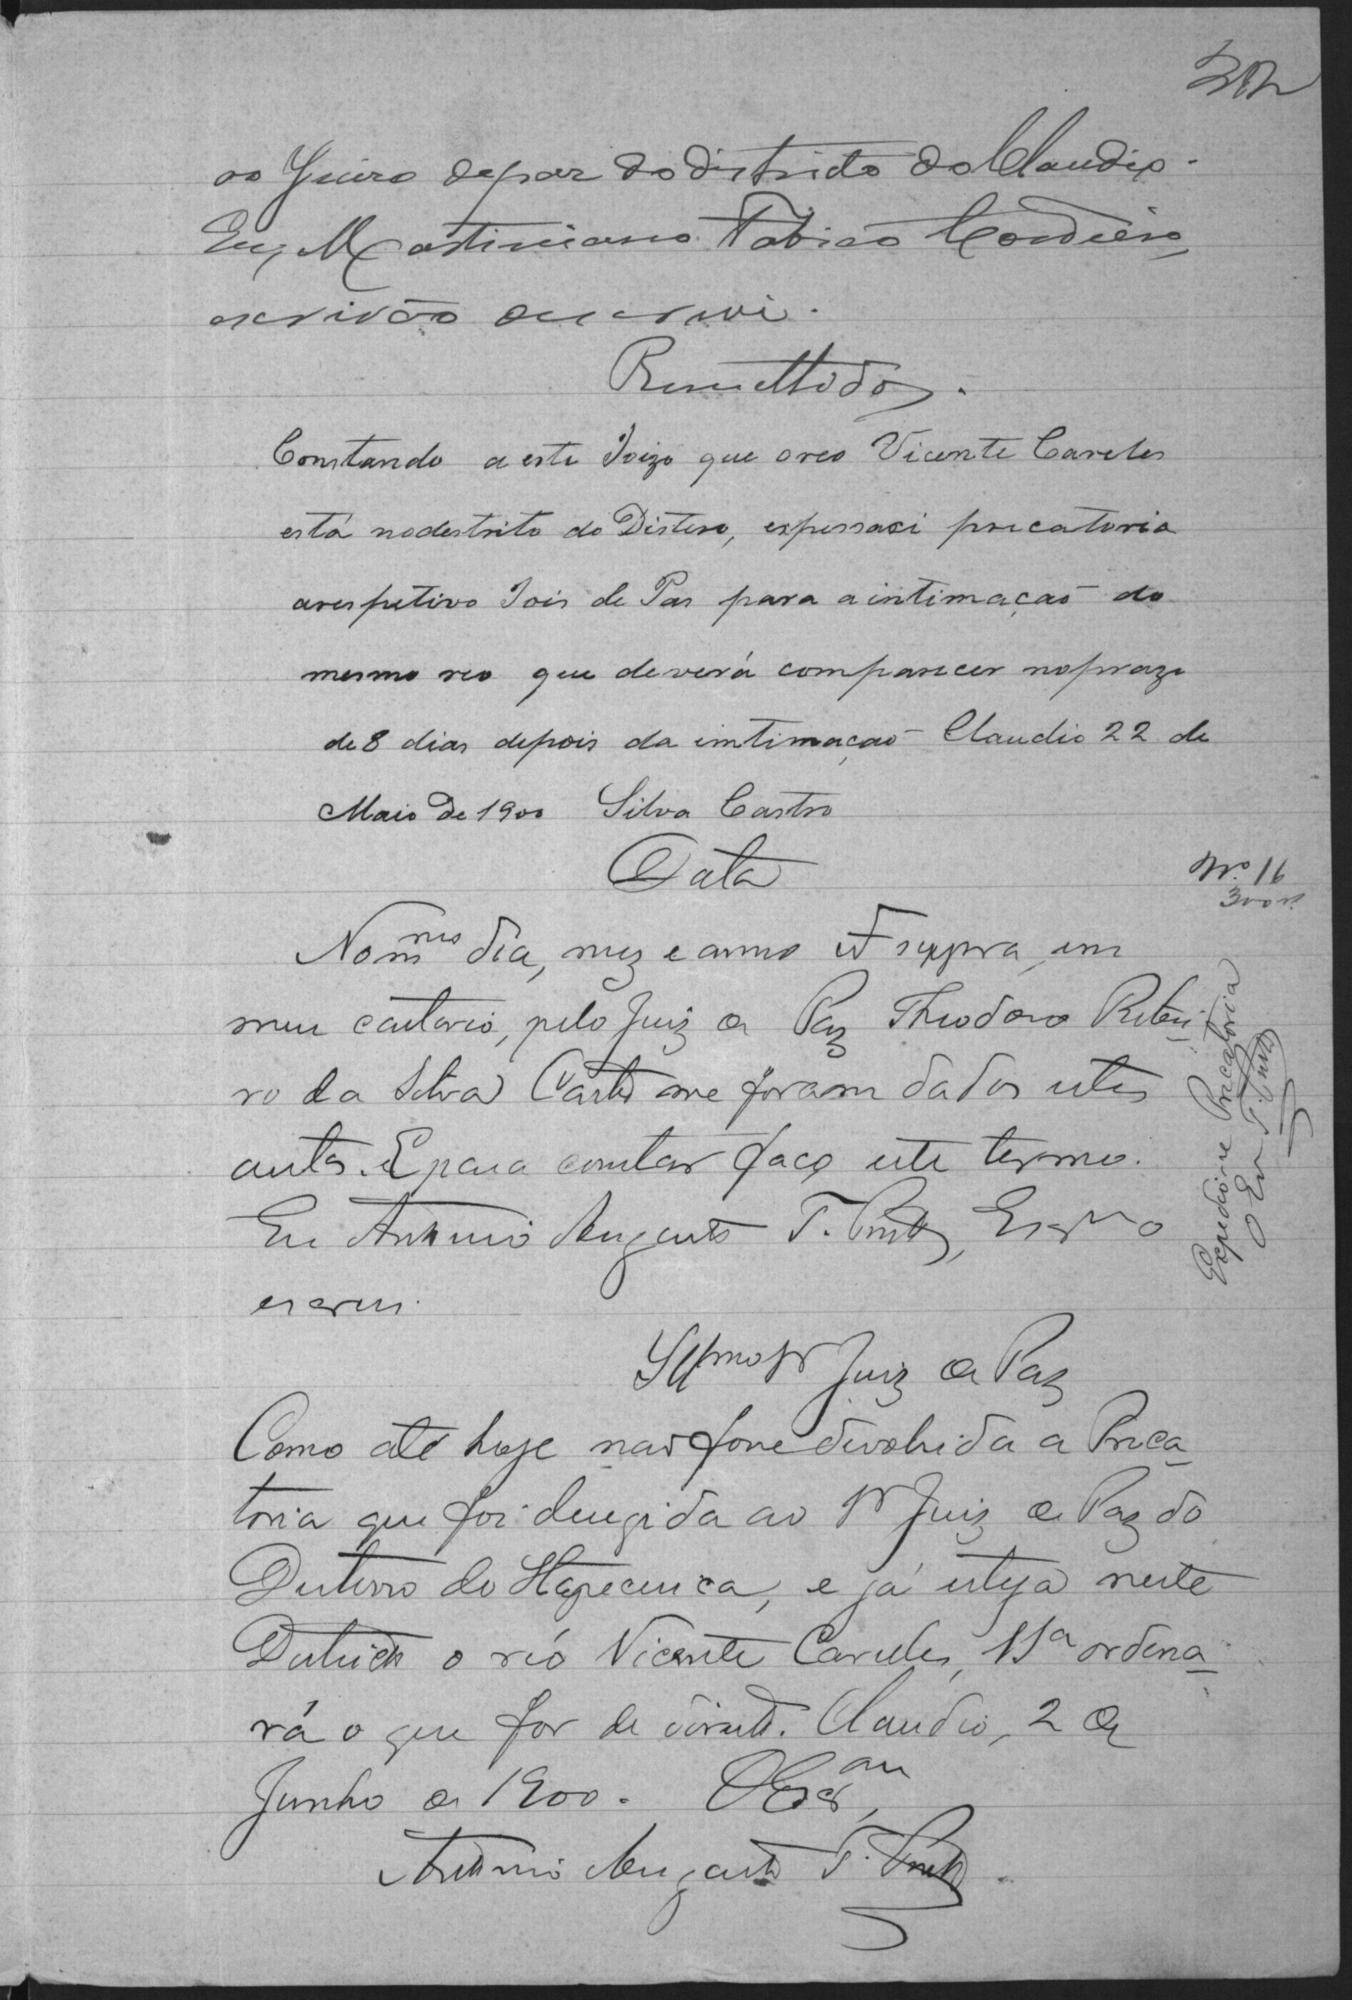 ao Juizo de paz do districto do Claudio.
Eu, Martiniano Fabião Cordeiro,
escrivão o escrevi.
Remettidos.
Constando a este Joizo que oreo Vicente Careles
está nodestrito do Distero, espessaci precatoria
arespetivo Jois de Pas para aintimação do
mesmo reo que deverá comparecer noprazo
de 8 dias depois da intimação Claudio 22 de
Maio de 1900 Silva Castro
Data
No mmo dia, mez e anno ut supra, em
meu cartorio, pelo Juiz de Paz Theodoro Ribei
ro da Silva Castro me foram dados estes
autos. E para constar faço este termo.
Eu Antonio Augusto T. Pretto, Escrvão
escrevi.
Nº 16
300 rs.
Expedi-se Precatoria
O Es T. Pretto
Illmo Sr Juiz de Paz
Como até hoje não fosse devolvida a Preca-
toria que foi dirigida ao Sr Juiz de Paz do
Desterro de Itapecerica, e já esteja neste
Districto o réo Vicente Careles, VSª ordena-
rá o que for de direito. Claudio, 2 de
Junho de 1900. O Escram,
Antonio Augusto T. Pretto.